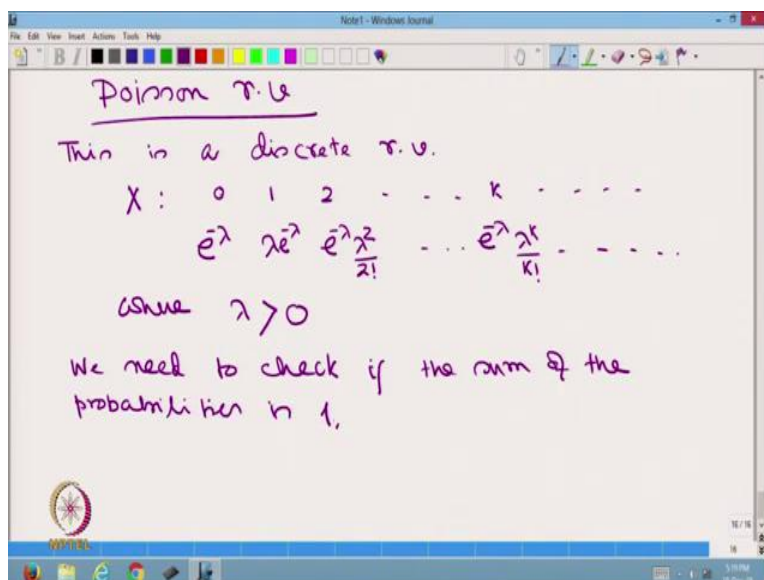 Note1 - Windows Journal
File Edit View Insert Actions Tools Help
Poisson r.v
This is a discrete r.v.
X : 0 1 2 - - . k . - - -
e^{-λ} λe^{-λ} e^{-λ} λ^2/2! - .. e^{-λ} λ^k/k! . - - ...
where λ > 0
We need to check if the sum of the
probabilities is 1.
NPTEL
16 / 16
16
5:19 PM